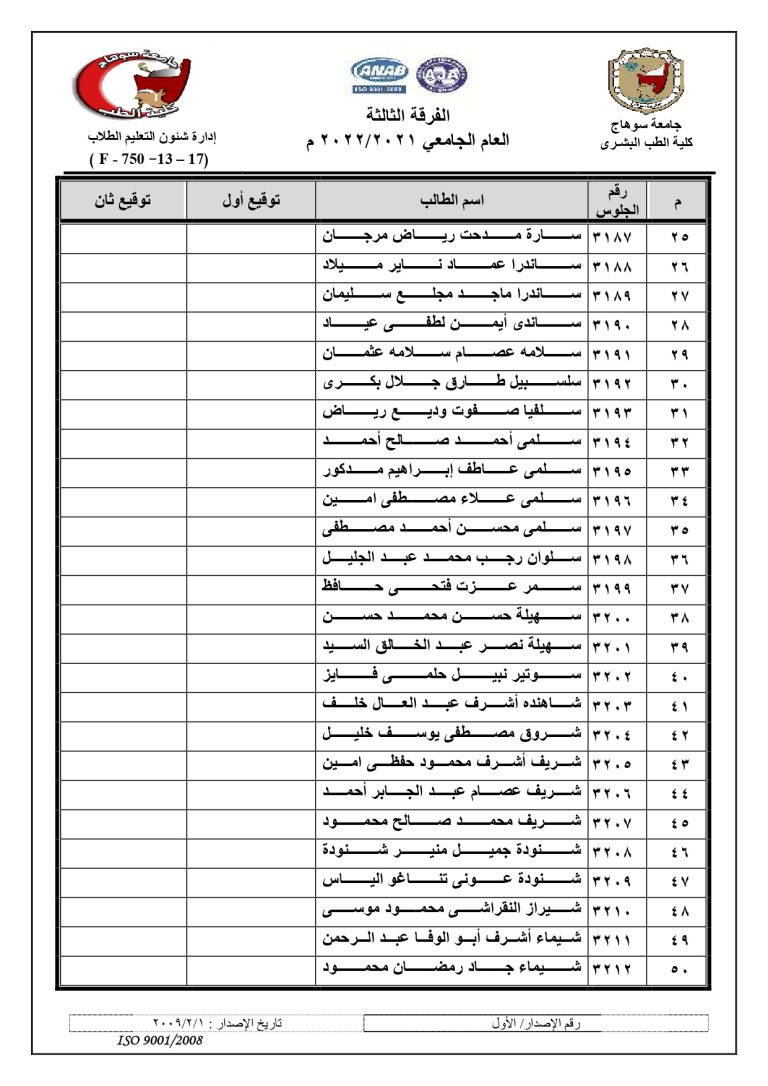 جامعة سوهاج
كلية الطب
ANAB
ISO 9001:2008
AJA
جامعة سوهاج
كلية الطب البشرى
الفرقة الثالثة
العام الجامعي ٢٠٢٢/٢٠٢١ م
إدارة شئون التعليم الطلاب
( F - 750 -13 – 17)
م رقم الجلوس اسم الطالب توقيع أول توقيع ثان
٢٥ ٣١٨٧ سارة مدحت رياض مرجان
٢٦ ٣١٨٨ ساندرا عماد ناير ميلاد
٢٧ ٣١٨٩ ساندرا ماجد مجلع سليمان
٢٨ ٣١٩٠ ساندى أيمن لطفى عياد
٢٩ ٣١٩١ سلامه عصام سلامه عثمان
٣٠ ٣١٩٢ سلسبيل طارق جلال بكرى
٣١ ٣١٩٣ سلفيا صفوت وديع رياض
٣٢ ٣١٩٤ سلمى أحمد صالح أحمد
٣٣ ٣١٩٥ سلمى عاطف إبراهيم مدكور
٣٤ ٣١٩٦ سلمى علاء مصطفى امين
٣٥ ٣١٩٧ سلمى محسن أحمد مصطفى
٣٦ ٣١٩٨ سلوان رجب محمد عبد الجليل
٣٧ ٣١٩٩ سمر عزت فتحى حافظ
٣٨ ٣٢٠٠ سهيلة حسن محمد حسن
٣٩ ٣٢٠١ سهيلة نصر عبد الخالق السيد
٤٠ ٣٢٠٢ سوتير نبيل حلمى فايز
٤١ ٣٢٠٣ شاهنده أشرف عبد العال خلف
٤٢ ٣٢٠٤ شروق مصطفى يوسف خليل
٤٣ ٣٢٠٥ شريف أشرف محمود حفظى امين
٤٤ ٣٢٠٦ شريف عصام عبد الجابر أحمد
٤٥ ٣٢٠٧ شريف محمد صالح محمود
٤٦ ٣٢٠٨ شنودة جميل منير شنودة
٤٧ ٣٢٠٩ شنودة عونى تناغو الياس
٤٨ ٣٢١٠ شيراز النقراشى محمود موسى
٤٩ ٣٢١١ شيماء أشرف أبو الوفا عبد الرحمن
٥٠ ٣٢١٢ شيماء جاد رمضان محمود
رقم الإصدار/ الأول تاريخ الإصدار : ٢٠٠٩/٢/١
ISO 9001/2008